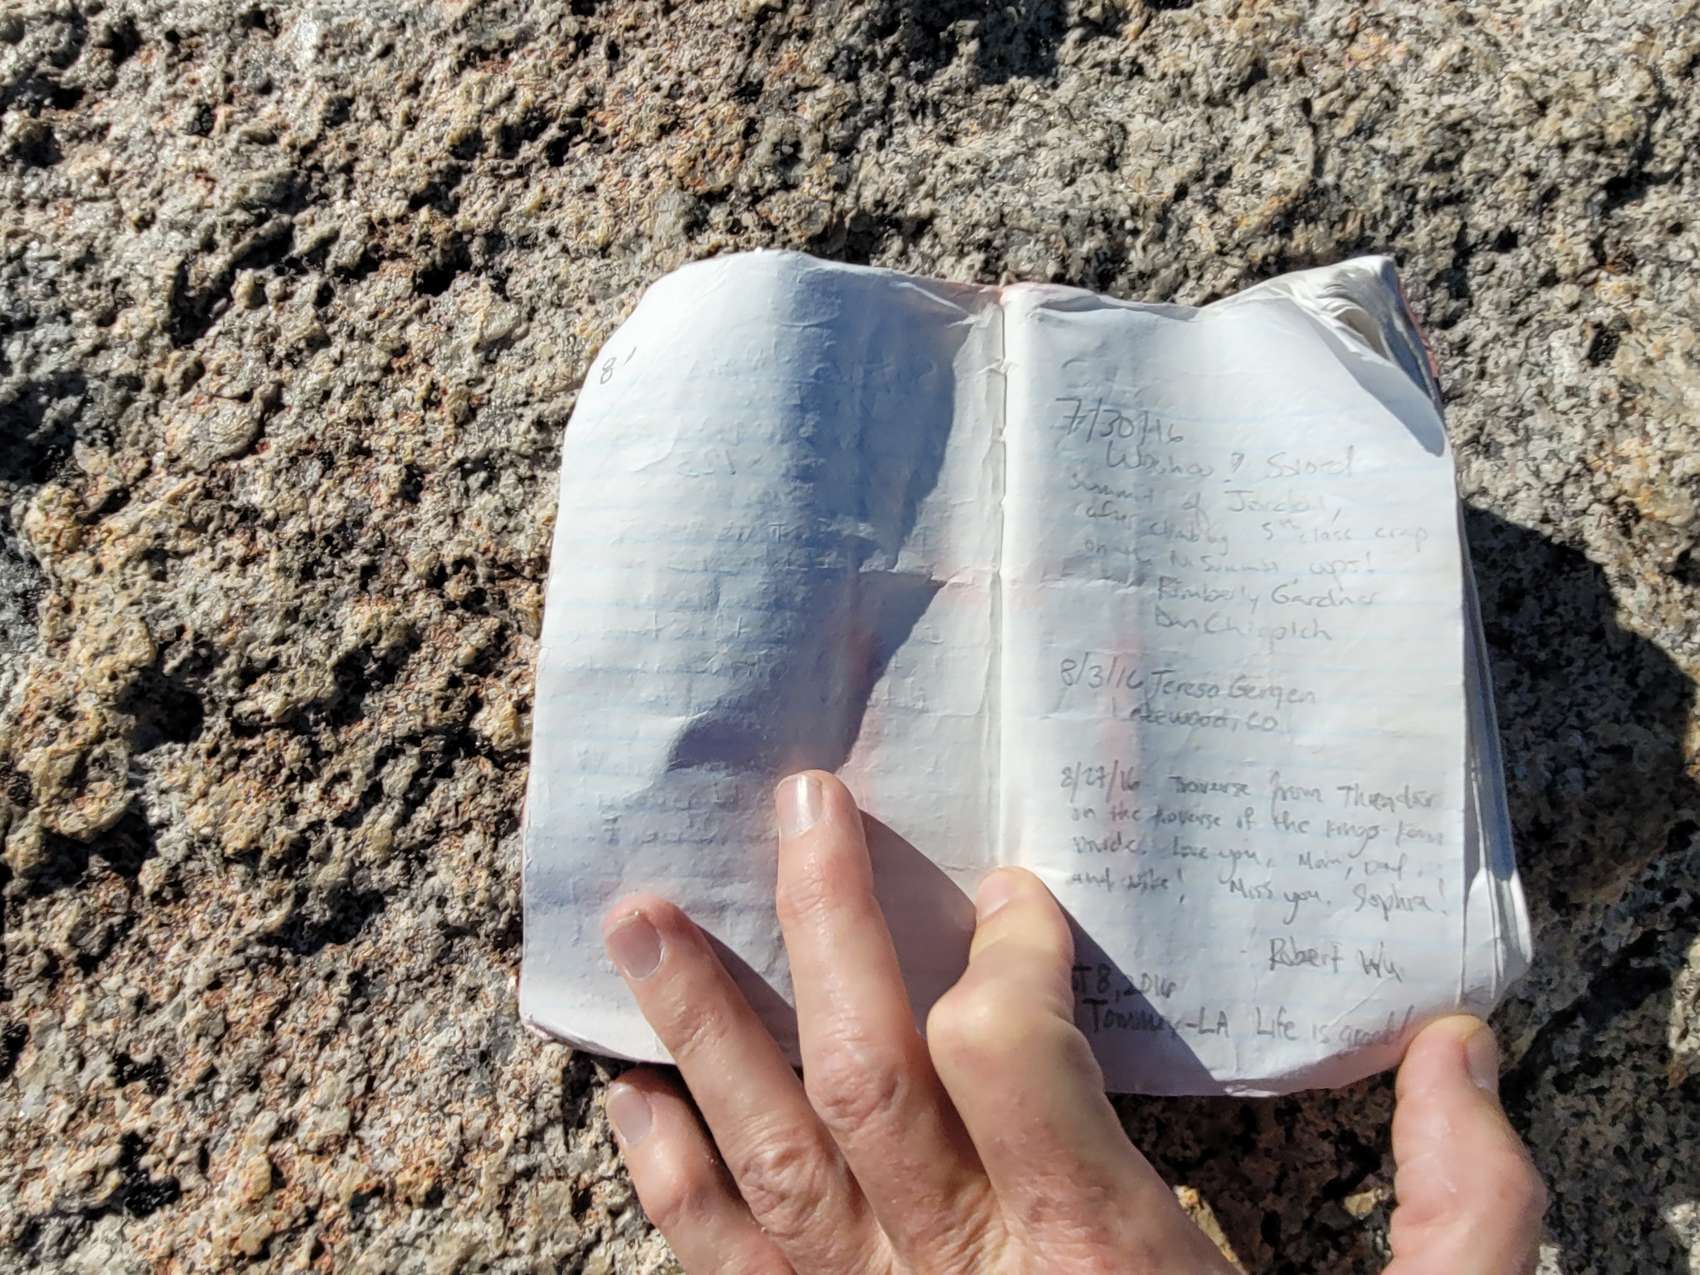 8'
7/30/16
Sword
summit of Jordan,
after climbing 5th class crap
on the N Summit, oops!
Kimberly Gardner
Dan
8/3/16 Teresa Gergen
Lakewood, CO
8/27/16 Traverse from Thunder
on the traverse of the Kings-Kern
Divide. Love you, Mom, Dad,
and Mike! Miss you, Sophia!
Robert Wu
CT 8, 2016
Tommey-LA Life is great!